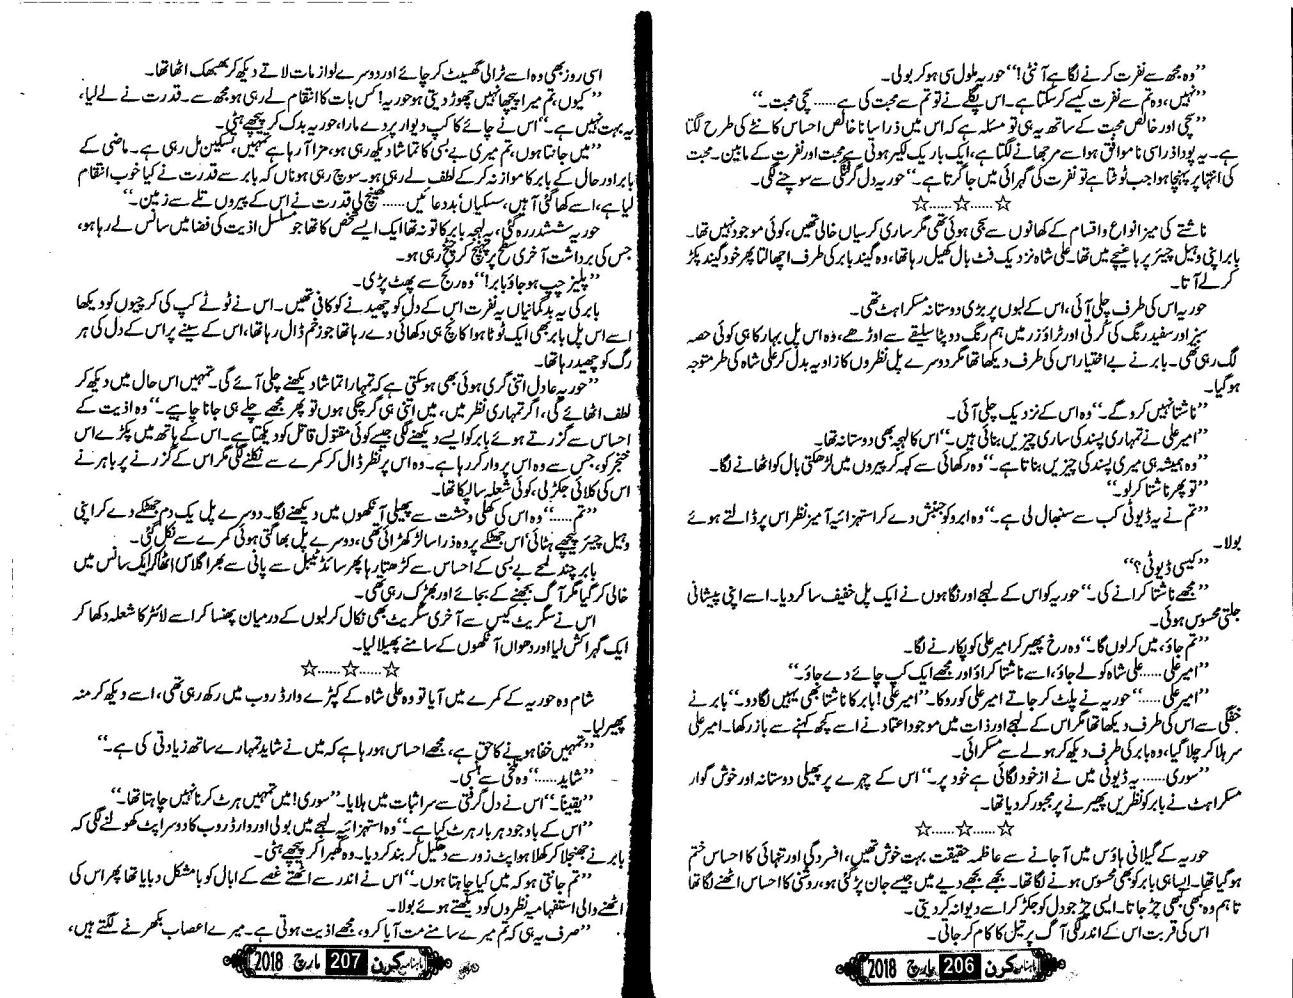 ”وہ مجھ سے نفرت کرنے لگا ہے آنٹی!“ حوریہ ملول سی ہو کر بولی۔
”نہیں، وہ تم سے نفرت کیسے کر سکتا ہے۔ اس پگلے نے تو تم سے محبت کی ہے...... سچی محبت۔“
”سچی اور خالص محبت کے ساتھ یہ ہی تو مسئلہ ہے کہ اس میں ذرا سا نا خالص احساس کانٹے کی طرح لگتا
ہے۔ یہ پودا ذرا سی نا موافق ہوا سے مرجھانے لگتا ہے، ایک باریک لکیر ہوتی ہے محبت اور نفرت کے مابین۔ محبت
کی انتہا پر پہنچا ہوا جب ٹوٹتا ہے تو نفرت کی گہرائی میں جا گرتا ہے۔“ حوریہ دل گرفتگی سے سوچنے لگی۔
☆......☆......☆
ناشتے کی میز انواع و اقسام کے کھانوں سے سجی ہوئی تھی مگر ساری کرسیاں خالی تھیں، کوئی موجود نہیں تھا۔
بابر اپنی وہیل چیئر پر باغیچے میں تھا۔ علی شاہ نزدیک فٹ بال کھیل رہا تھا، وہ گیند بابر کی طرف اچھالتا پھر خود گیند پکڑ
کر لے آتا۔
حوریہ اس کی طرف چلی آئی، اس کے لبوں پر بڑی دوستانہ مسکراہٹ تھی۔
سبز اور سفید رنگ کی کرتی اور ٹراؤزر میں ہم رنگ دوپٹا سلیقے سے اوڑھے، وہ اس پل بہار کا ہی کوئی حصہ
لگ رہی تھی۔ بابر نے بے اختیار اس کی طرف دیکھا تھا مگر دوسرے پل نظروں کا زاویہ بدل کر علی شاہ کی طرف متوجہ
ہو گیا۔
”ناشتا نہیں کرو گے۔“ وہ اس کے نزدیک چلی آئی۔
”امیر علی نے تمہاری پسند کی ساری چیزیں بنائی ہیں۔“ اس کا لہجہ بھی دوستانہ تھا۔
”وہ ہمیشہ ہی میری پسند کی چیزیں بناتا ہے۔“ وہ رکھائی سے کہہ کر پیروں میں لڑھکتی بال کو اٹھانے لگا۔
”تو پھر ناشتا کر لو۔“
”تم نے یہ ڈیوٹی کب سے سنبھال لی ہے۔“ وہ ابرو کو جنبش دے کر استہزائیہ آمیز نظر اس پر ڈالتے ہوئے
بولا۔
”کیسی ڈیوٹی؟“
”مجھے ناشتا کرانے کی۔“ حوریہ کو اس کے لہجے اور نگاہوں نے ایک پل خفیف سا کر دیا۔ اسے اپنی پیشانی
جلتی محسوس ہوئی۔
”تم جاؤ، میں کر لوں گا۔“ وہ رخ پھیر کر امیر علی کو پکارنے لگا۔
”امیر علی...... علی شاہ کو لے جاؤ، اسے ناشتا کراؤ اور مجھے ایک کپ چائے دے جاؤ۔“
”امیر علی......“ حوریہ نے پلٹ کر جاتے امیر علی کو روکا۔ ”امیر علی! بابر کا ناشتا بھی یہیں لگا دو۔“ بابر نے
خفگی سے اس کی طرف دیکھا تھا مگر اس کے لہجے اور ذات میں موجود اعتماد نے اسے کچھ کہنے سے باز رکھا۔ امیر علی
سر ہلا کر چلا گیا، وہ بابر کی طرف دیکھ کر ہولے سے مسکرائی۔
”سوری...... یہ ڈیوٹی میں نے از خود لگائی ہے خود پر۔“ اس کے چہرے پر پھیلی دوستانہ اور خوش گوار
مسکراہٹ نے بابر کو نظریں پھیرنے پر مجبور کر دیا تھا۔
☆......☆......☆
حوریہ کے گیلانی ہاؤس میں آ جانے سے عاظمہ حقیقت بہت خوش تھیں، افسردگی اور تنہائی کا احساس ختم
ہو گیا تھا۔ ایسا ہی بابر کو بھی محسوس ہونے لگا تھا۔ بجھے بجھے دیے میں جیسے جان پڑ گئی ہو، روشنی کا احساس اٹھنے لگا تھا
تاہم وہ کبھی کبھی چڑ جاتا۔ ایسی چڑ جو دل کو جکڑ کر اسے دیوانہ کر دیتی۔
اس کی قربت اس کے اندر لگی آگ پر تیل کا کام کر جاتی۔
ماہنامہ کرن 206 مارچ 2018
اسی روز بھی وہ اسے ٹرالی گھسیٹ کر چائے اور دوسرے لوازمات لاتے دیکھ کر بھبھک اٹھا تھا۔
”کیوں، تم میرا پیچھا نہیں چھوڑ دیتی ہو حوریہ! کس بات کا انتقام لے رہی ہو مجھ سے۔ قدرت نے لے لیا،
یہ بہت نہیں ہے۔“ اس نے چائے کا کپ دیوار پر دے مارا، حوریہ بدک کر پیچھے ہٹی۔
”میں جانتا ہوں، تم میری بے بسی کا تماشا دیکھ رہی ہو، مزا آ رہا ہے تمہیں، تسکین مل رہی ہے۔ ماضی کے
بابر اور حال کے بابر کا موازنہ کر کے لطف لے رہی ہو۔ سوچ رہی ہو ناں کہ بابر سے قدرت نے کیا خوب انتقام
لیا ہے، اسے کھا گئی آہیں، سسکیاں، بددعائیں...... کھینچ لی قدرت نے اس کے پیروں تلے سے زمین۔“
حوریہ ششدر رہ گئی، یہ لہجہ بابر کا تو نہ تھا ایک ایسے شخص کا تھا جو مسلسل اذیت کی فضا میں سانس لے رہا ہو،
جس کی برداشت آخری سطح پر پہنچ کر چیخ رہی ہو۔
”پلیز چپ ہو جاؤ بابر!“ وہ رنج سے پھٹ پڑی۔
بابر کی یہ بدگمانیاں یہ نفرت اس کے دل کو چھیدنے کو کافی تھیں۔ اس نے ٹوٹے کپ کی کرچیوں کو دیکھا
اسے اس پل بابر بھی ایک ٹوٹا ہوا کانچ ہی دکھائی دے رہا تھا جو زخم ڈال رہا تھا، اس کے سینے پر اس کے دل کی ہر
رگ کو چھید رہا تھا۔
”حوریہ عادل اتنی گری ہوئی بھی ہو سکتی ہے کہ تمہارا تماشا دیکھنے چلی آئے گی۔ تمہیں اس حال میں دیکھ کر
لطف اٹھائے گی، اگر تمہاری نظر میں، میں اتنی ہی گر چکی ہوں تو پھر مجھے چلے ہی جانا چاہیے۔“ وہ اذیت کے
احساس سے گزرتے ہوئے بابر کو ایسے دیکھنے لگی جیسے کوئی مقتول قاتل کو دیکھتا ہے۔ اس کے ہاتھ میں پکڑے اس
خنجر کو، جس سے وہ اس پر وار کر رہا ہے۔ وہ اس پر نظر ڈال کر کمرے سے نکلنے لگی مگر اس کے گزرنے پر بابر نے
اس کی کلائی جکڑ لی، کوئی شعلہ سا لپکا تھا۔
”تم......“ وہ اس کی کھلی وحشت سے پھیلی آنکھوں میں دیکھنے لگا۔ دوسرے پل یک دم جھٹکے دے کر اپنی
وہیل چیئر پیچھے ہٹائی اس جھٹکے پر وہ ذرا سا لڑھرائی تھی، دوسرے پل بھاگتی ہوئی کمرے سے نکل گئی۔
بابر چند لمحے بے بسی کے احساس سے کڑھتا رہا پھر سائڈ ٹیبل سے پانی سے بھرا گلاس اٹھا کر ایک سانس میں
خالی کر گیا مگر آگ بجھنے کے بجائے اور بھڑک رہی تھی۔
اس نے سگریٹ کیس سے آخری سگریٹ بھی نکال کر لبوں کے درمیان پھنسا کر اسے لائٹر کا شعلہ دکھا کر
ایک گہرا کش لیا اور دھواں آنکھوں کے سامنے پھیلا لیا۔
☆......☆......☆
شام وہ حوریہ کے کمرے میں آیا تو وہ علی شاہ کے کپڑے وارڈ روب میں رکھ رہی تھی، اسے دیکھ کر منہ
پھیر لیا۔
”تمہیں خفا ہونے کا حق ہے، مجھے احساس ہو رہا ہے کہ میں نے شاید تمہارے ساتھ زیادتی کی ہے۔“
”شاید......“ وہ تلخی سے ہنسی۔
”یقیناً۔“ اس نے دل گرفتی سے سر اثبات میں ہلایا۔ ”سوری! میں تمہیں ہرٹ کرنا نہیں چاہتا تھا۔“
”اس کے باوجود ہر بار ہرٹ کیا ہے۔“ وہ استہزائیہ لہجے میں بولی اور وارڈ روب کا دوسرا پٹ کھولنے لگی کہ
بابر نے جھنجلا کر کھلا ہوا پٹ زور سے دھکیل کر بند کر دیا۔ وہ گھبرا کر پیچھے ہٹی۔
”تم جانتی ہو کہ میں کیا چاہتا ہوں۔“ اس نے اندر سے اٹھتے غصے کے ابال کو بامشکل دبایا تھا پھر اس کی
اٹھنے والی استفہامیہ نظروں کو دیکھتے ہوئے بولا۔
”صرف یہ ہی کہ تم میرے سامنے مت آیا کرو، مجھے اذیت ہوتی ہے۔ میرے اعصاب بکھرنے لگتے ہیں،
ماہنامہ کرن 207 مارچ 2018